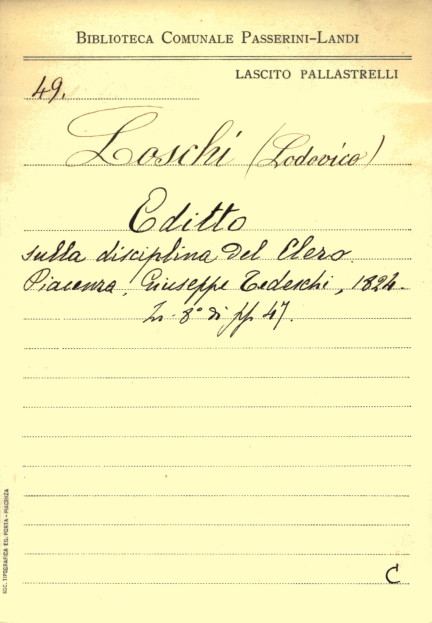 BIBLIOTECA COMUNALE PASSERINI-LANDI
LASCITO PALLASTRELLI
49.
Loschi (Lodovico)
Editto
sulla disciplina del Clero.
Piacenza, Giuseppe Tedeschi, 1824.
In-8° di pp 47.
C
SOC. TIPOGRAFICA ED. PORTA - PIACENZA